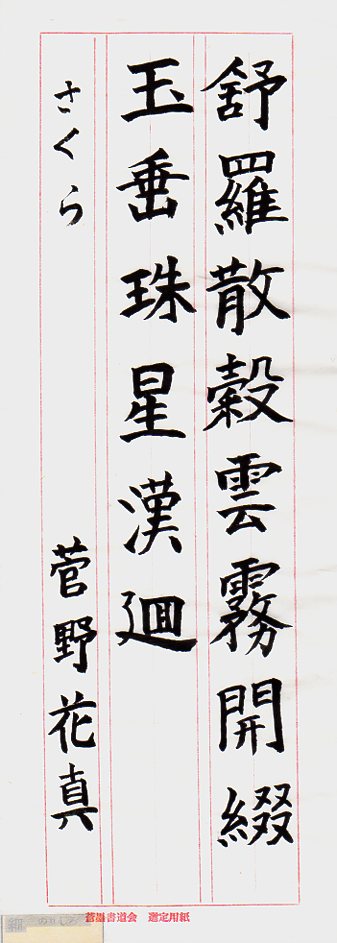 舒羅散縠雲霧開綴
玉垂珠星漢迴
さくら 菅野花真
菅墨書道会 選定用紙